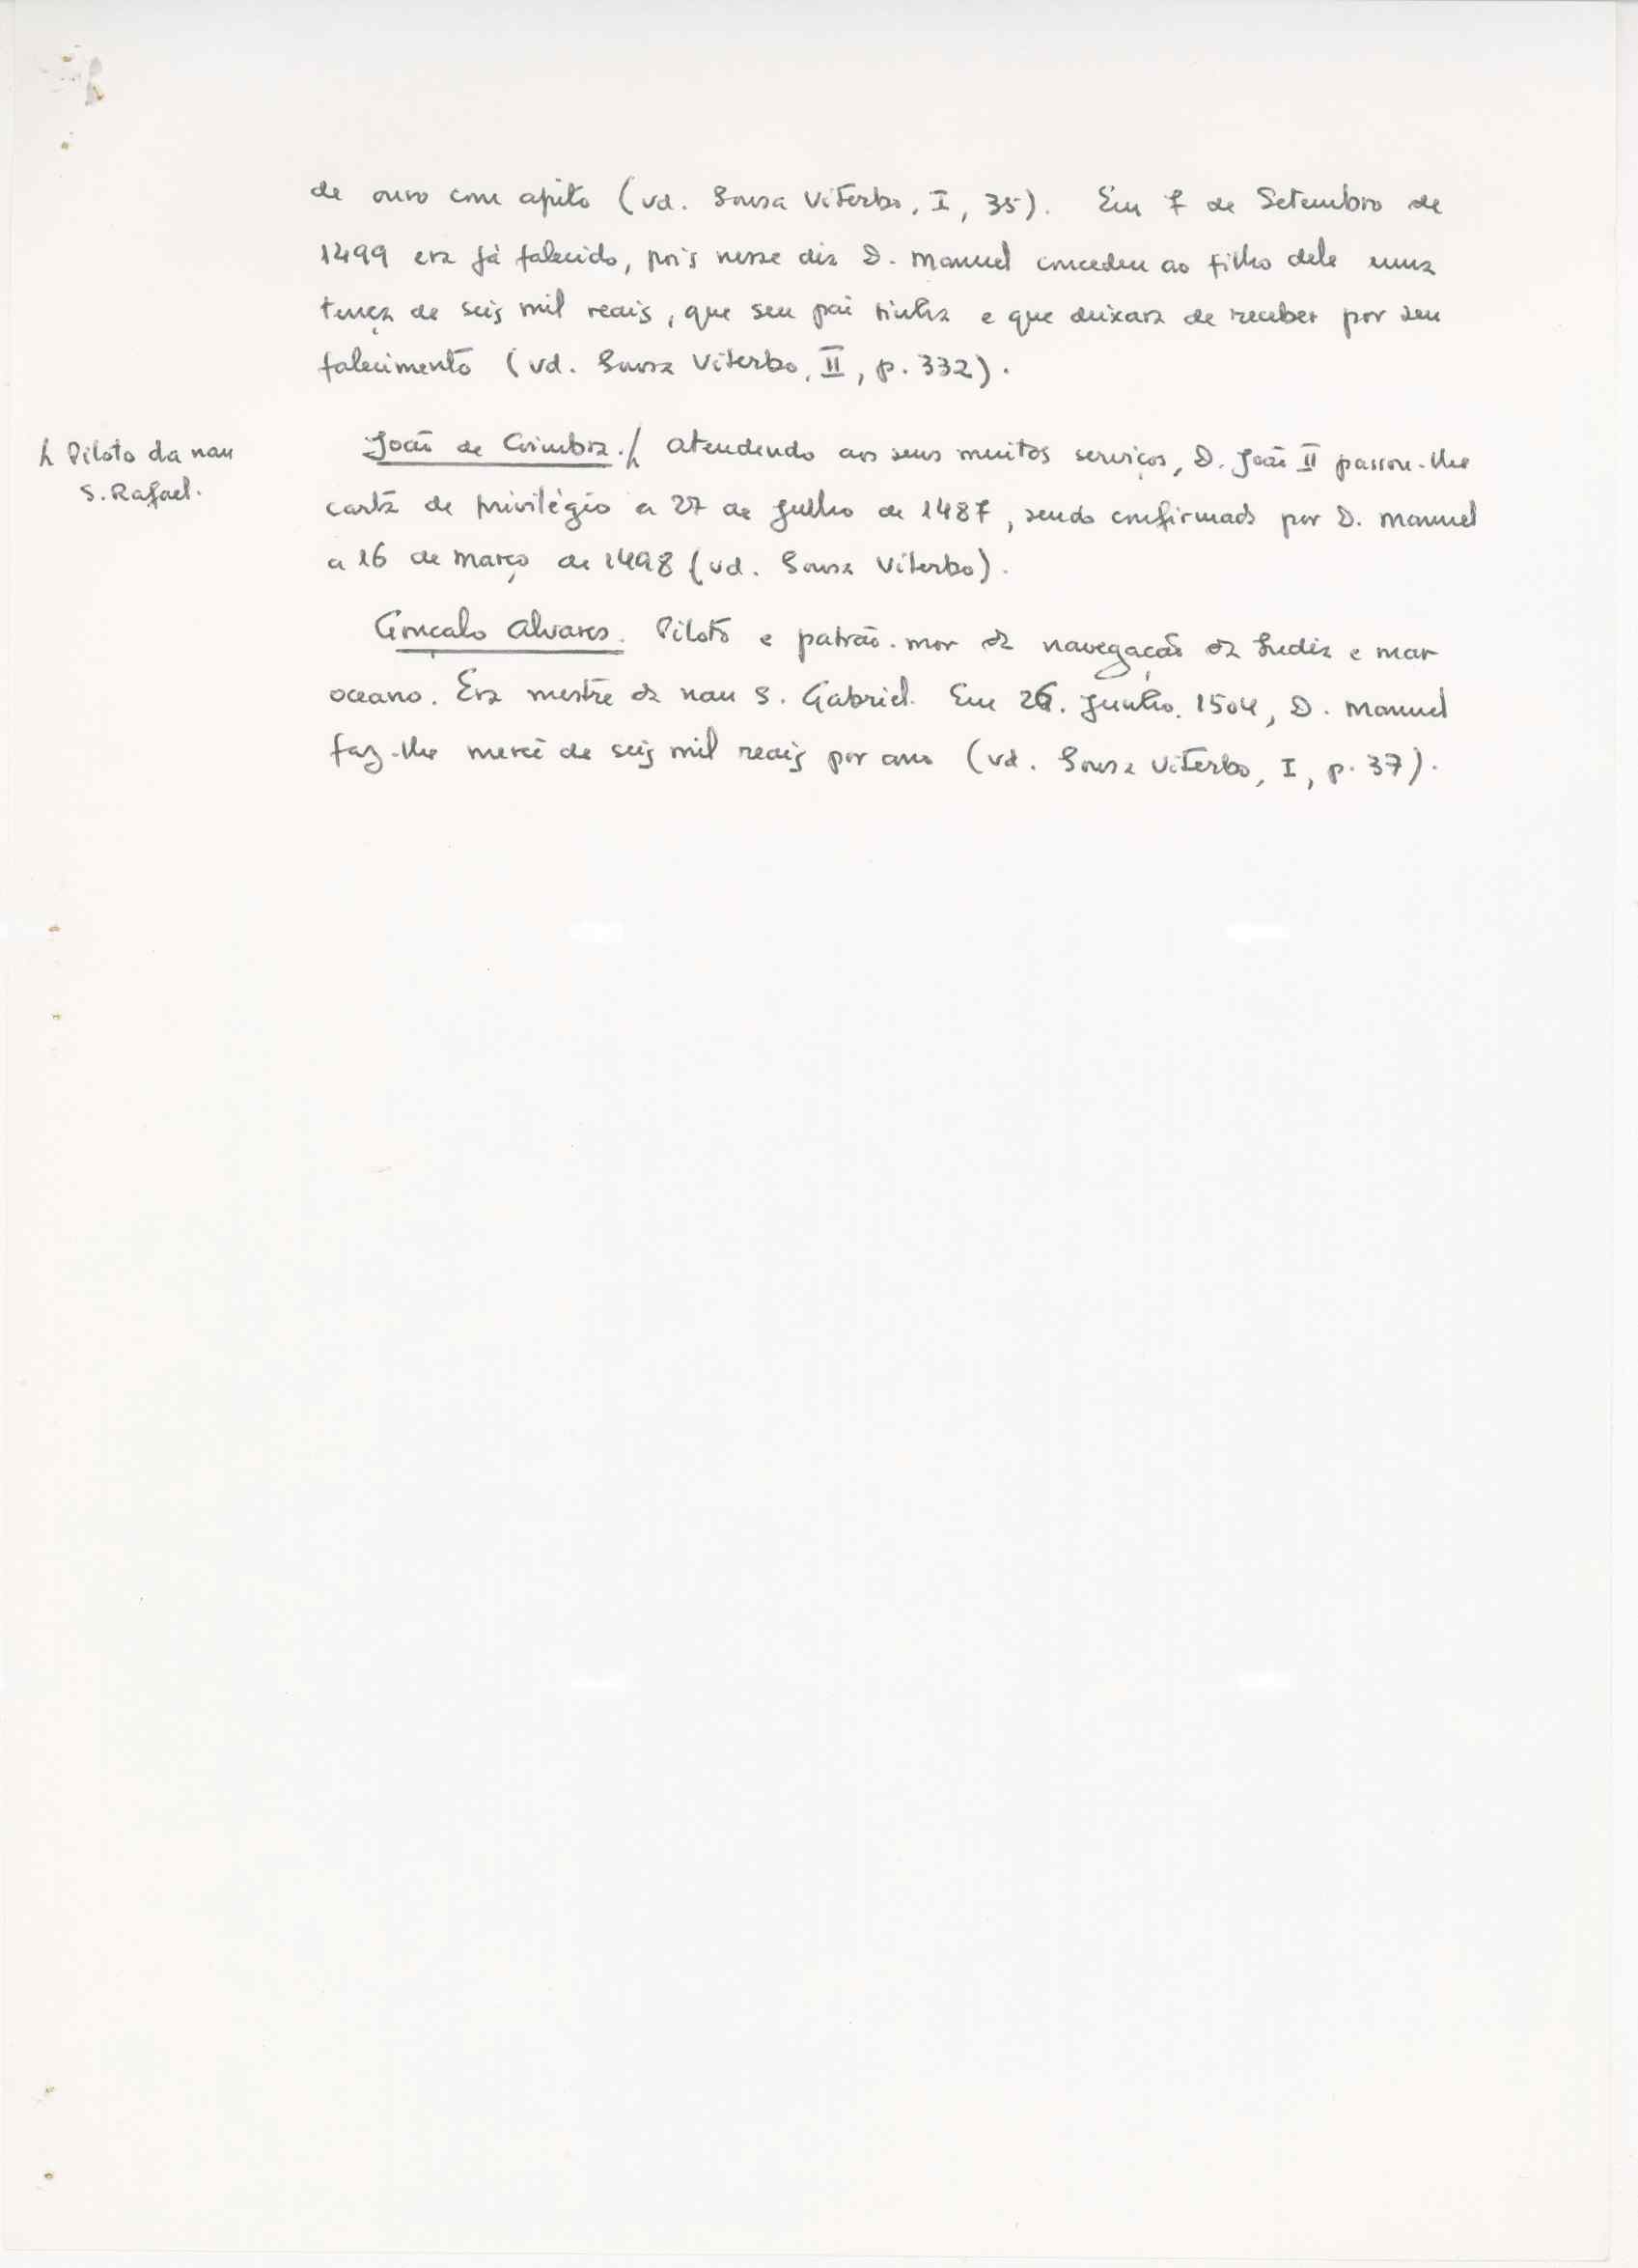 de ouro com apito (vd. Sousa Viterbo, I, 35). Em 7 de Setembro de
1499 era já falecido, pois nesse dia D. Manuel concedeu ao filho dele uma
tença de seis mil reais, que seu pai tinha e que deixara de receber por seu
falecimento (vd. Sousa Viterbo, II, p. 332).
João de Coimbra. / Atendendo aos seus muitos serviços, D. João II passou-lhe
carta de privilégio a 27 de Julho de 1487, sendo confirmado por D. Manuel
a 16 de Março de 1498 (vd. Sousa Viterbo).
Gonçalo Alvares. Piloto e patrão-mor da navegação da India e mar
oceano. Era mestre da nau S. Gabriel. Em 26. Junho. 1504, D. Manuel
faz-lhe mercê de seis mil reais por ano (vd. Sousa Viterbo, I, p. 37).
Piloto da nau
S. Rafael.